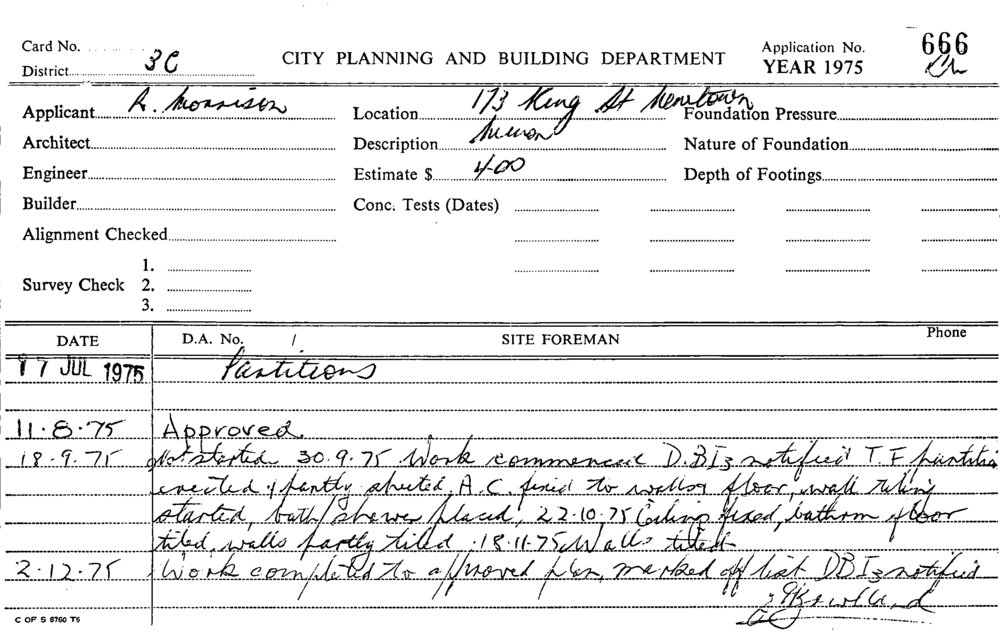 Card No.
District 3C
CITY PLANNING AND BUILDING DEPARTMENT
Application No. 666
YEAR 1975
Applicant R. Morrison
Location 173 King St Newtown
Foundation Pressure
Architect
Description
Nature of Foundation
Engineer
Estimate $ 400
Depth of Footings
Builder
Conc. Tests (Dates)
Alignment Checked
1.
Survey Check 2.
3.
DATE D.A. No. / SITE FOREMAN Phone
17 JUL 1975 Partitions
11.8.75 Approved.
18.9.75 Not started 30.9.75 Work commenced D.B.I. notified T.F partition
erected & partly sheeted, A.C. fixed to walls & floor, wall tiling
started, bath/shower placed, 22.10.75 Ceiling fixed, bathrm floor
tiled, walls partly tiled. 18.11.75 Walls tiled
2.12.75 Work completed to approved plan, marked off list DBI notified
C OF S 6760 T6